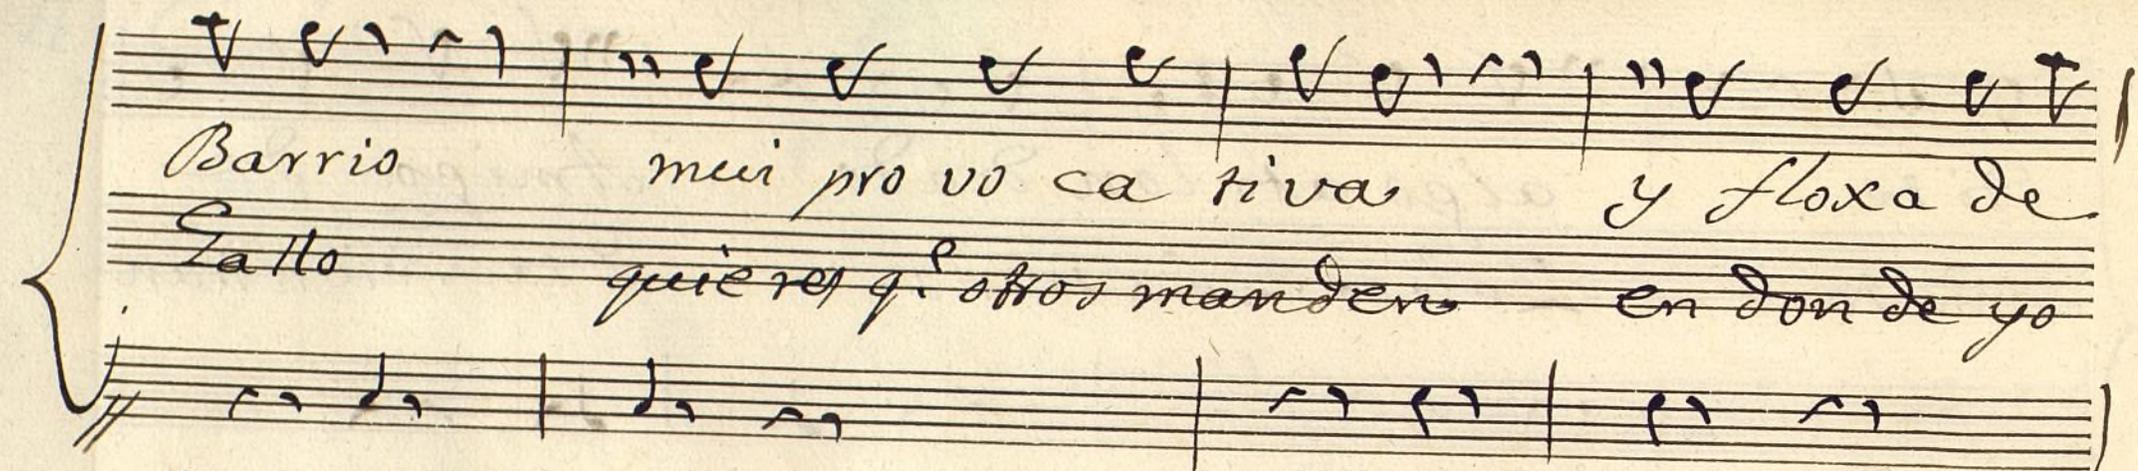 Barrio mui pro vo ca tiva y floxa de
Gallo quieres q.e otros manden en don de yo